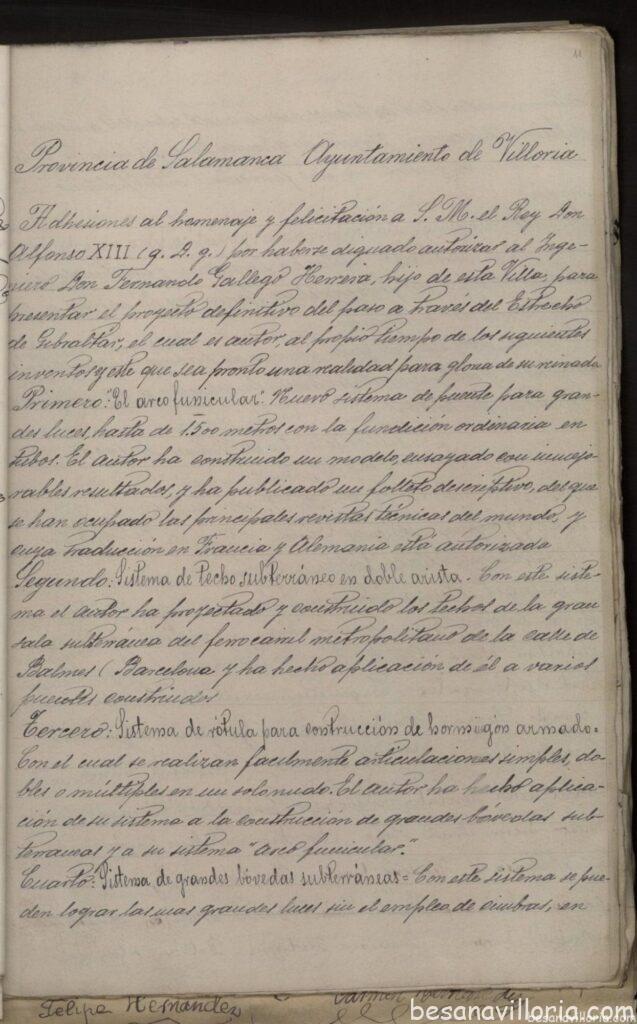 11
Provincia de Salamanca Ayuntamiento de Villoria
Adhesiones al homenaje y felicitación a S. M. el Rey Don
Alfonso XIII (q. D. g.) por haberse dignado autorizar al Inge-
niero Don Fernando Gallego Herrera, hijo de esta Villa, para
presentar el proyecto definitivo del paso a través del Estrecho
de Gibraltar, el cual es autor, al propio tiempo de los siguientes
inventos y este que sea pronto una realidad para gloria de su reinado
Primero: "El arco funicular". Nuevo sistema de puente para gran-
des luces, hasta de 1.500 metros con la fundición ordinaria en
tubos. El autor ha construido un modelo, ensayado con inmejo-
rables resultados, y ha publicado un folleto descriptivo, del que
se han ocupado las principales revistas técnicas del mundo, y
cuya traducción en Francia y Alemania está autorizada
Segundo: Sistema de techo subterráneo en doble arista. - Con este siste-
ma el autor ha proyectado y construido los techos de la gran
sala subterranea del ferrocarril metropolitano de la calle de
Balmes (Barcelona y ha hecho aplicación de él a varios
puentes construidos
Tercero: Sistema de rótula para construcción de hormigón armado =
Con el cual se realizan facilmente articulaciones simples, do-
bles o múltiples en un solo nudo. El autor ha hecho aplica-
ción de su sistema a la construcción de grandes bóvedas sub-
terraneas y a su sistema "arco funicular".
Cuarto: Sistema de grandes bóvedas subterráneas = Con este sistema se pue-
den lograr las mas grandes luces sin el empleo de cimbras, en
Felipe Hernández
Carmen
besanavilloria.com
besanavilloria.com